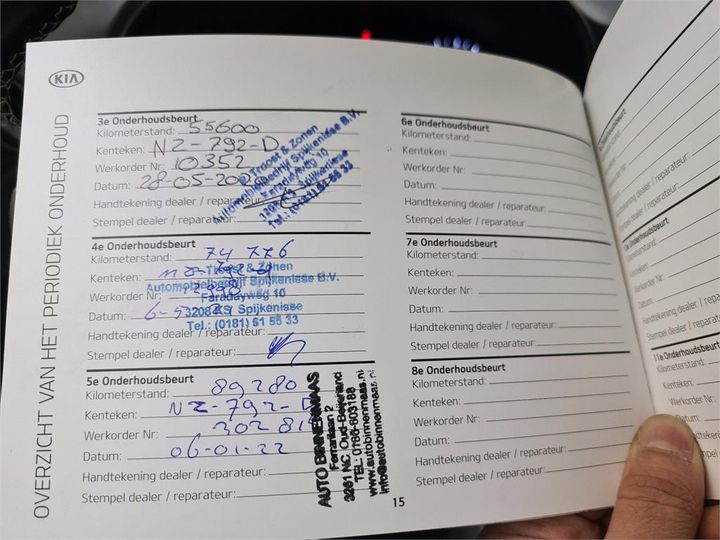 KIA
OVERZICHT VAN HET PERIODIEK ONDERHOUD
3e Onderhoudsbeurt
Kilometerstand: 55600
Kenteken: NZ-792-D
Werkorder Nr: 10352
Datum: 28-05-20
Handtekening dealer / reparateur:
Stempel dealer / reparateur:
Troost & Zonen
Automobielbedrijf Spijkenisse B.V.
Faradayweg 10
Spijkenisse
Tel.: (0181) 61 55 33
4e Onderhoudsbeurt
Kilometerstand: 74 776
Kenteken:
Werkorder Nr:
Datum: 6-
Handtekening dealer / reparateur:
Stempel dealer / reparateur:
Troost & Zonen
Automobielbedrijf Spijkenisse B.V.
Faradayweg 10
3208 KS / Spijkenisse
Tel.: (0181) 61 55 33
5e Onderhoudsbeurt
Kilometerstand: 89280
Kenteken: NZ-792-D
Werkorder Nr: 302819
Datum: 06-01-22
Handtekening dealer / reparateur:
Stempel dealer / reparateur:
AUTO BINNENMAAS
Ferrarilaan 2
3261 NC Oud-Beijerland
TEL: 0186-603188
www.autobinnenmaas.nl
info@autobinnenmaas.nl
15
6e Onderhoudsbeurt
Kilometerstand:
Kenteken:
Werkorder Nr:
Datum:
Handtekening dealer / reparateur:
Stempel dealer / reparateur:
7e Onderhoudsbeurt
Kilometerstand:
Kenteken:
Werkorder Nr:
Datum:
Handtekening dealer / reparateur:
Stempel dealer / reparateur:
8e Onderhoudsbeurt
Kilometerstand:
Kenteken:
Werkorder Nr:
Datum:
Handtekening dealer / reparateur:
Stempel dealer / reparateur:
11e Onderhoudsbeurt